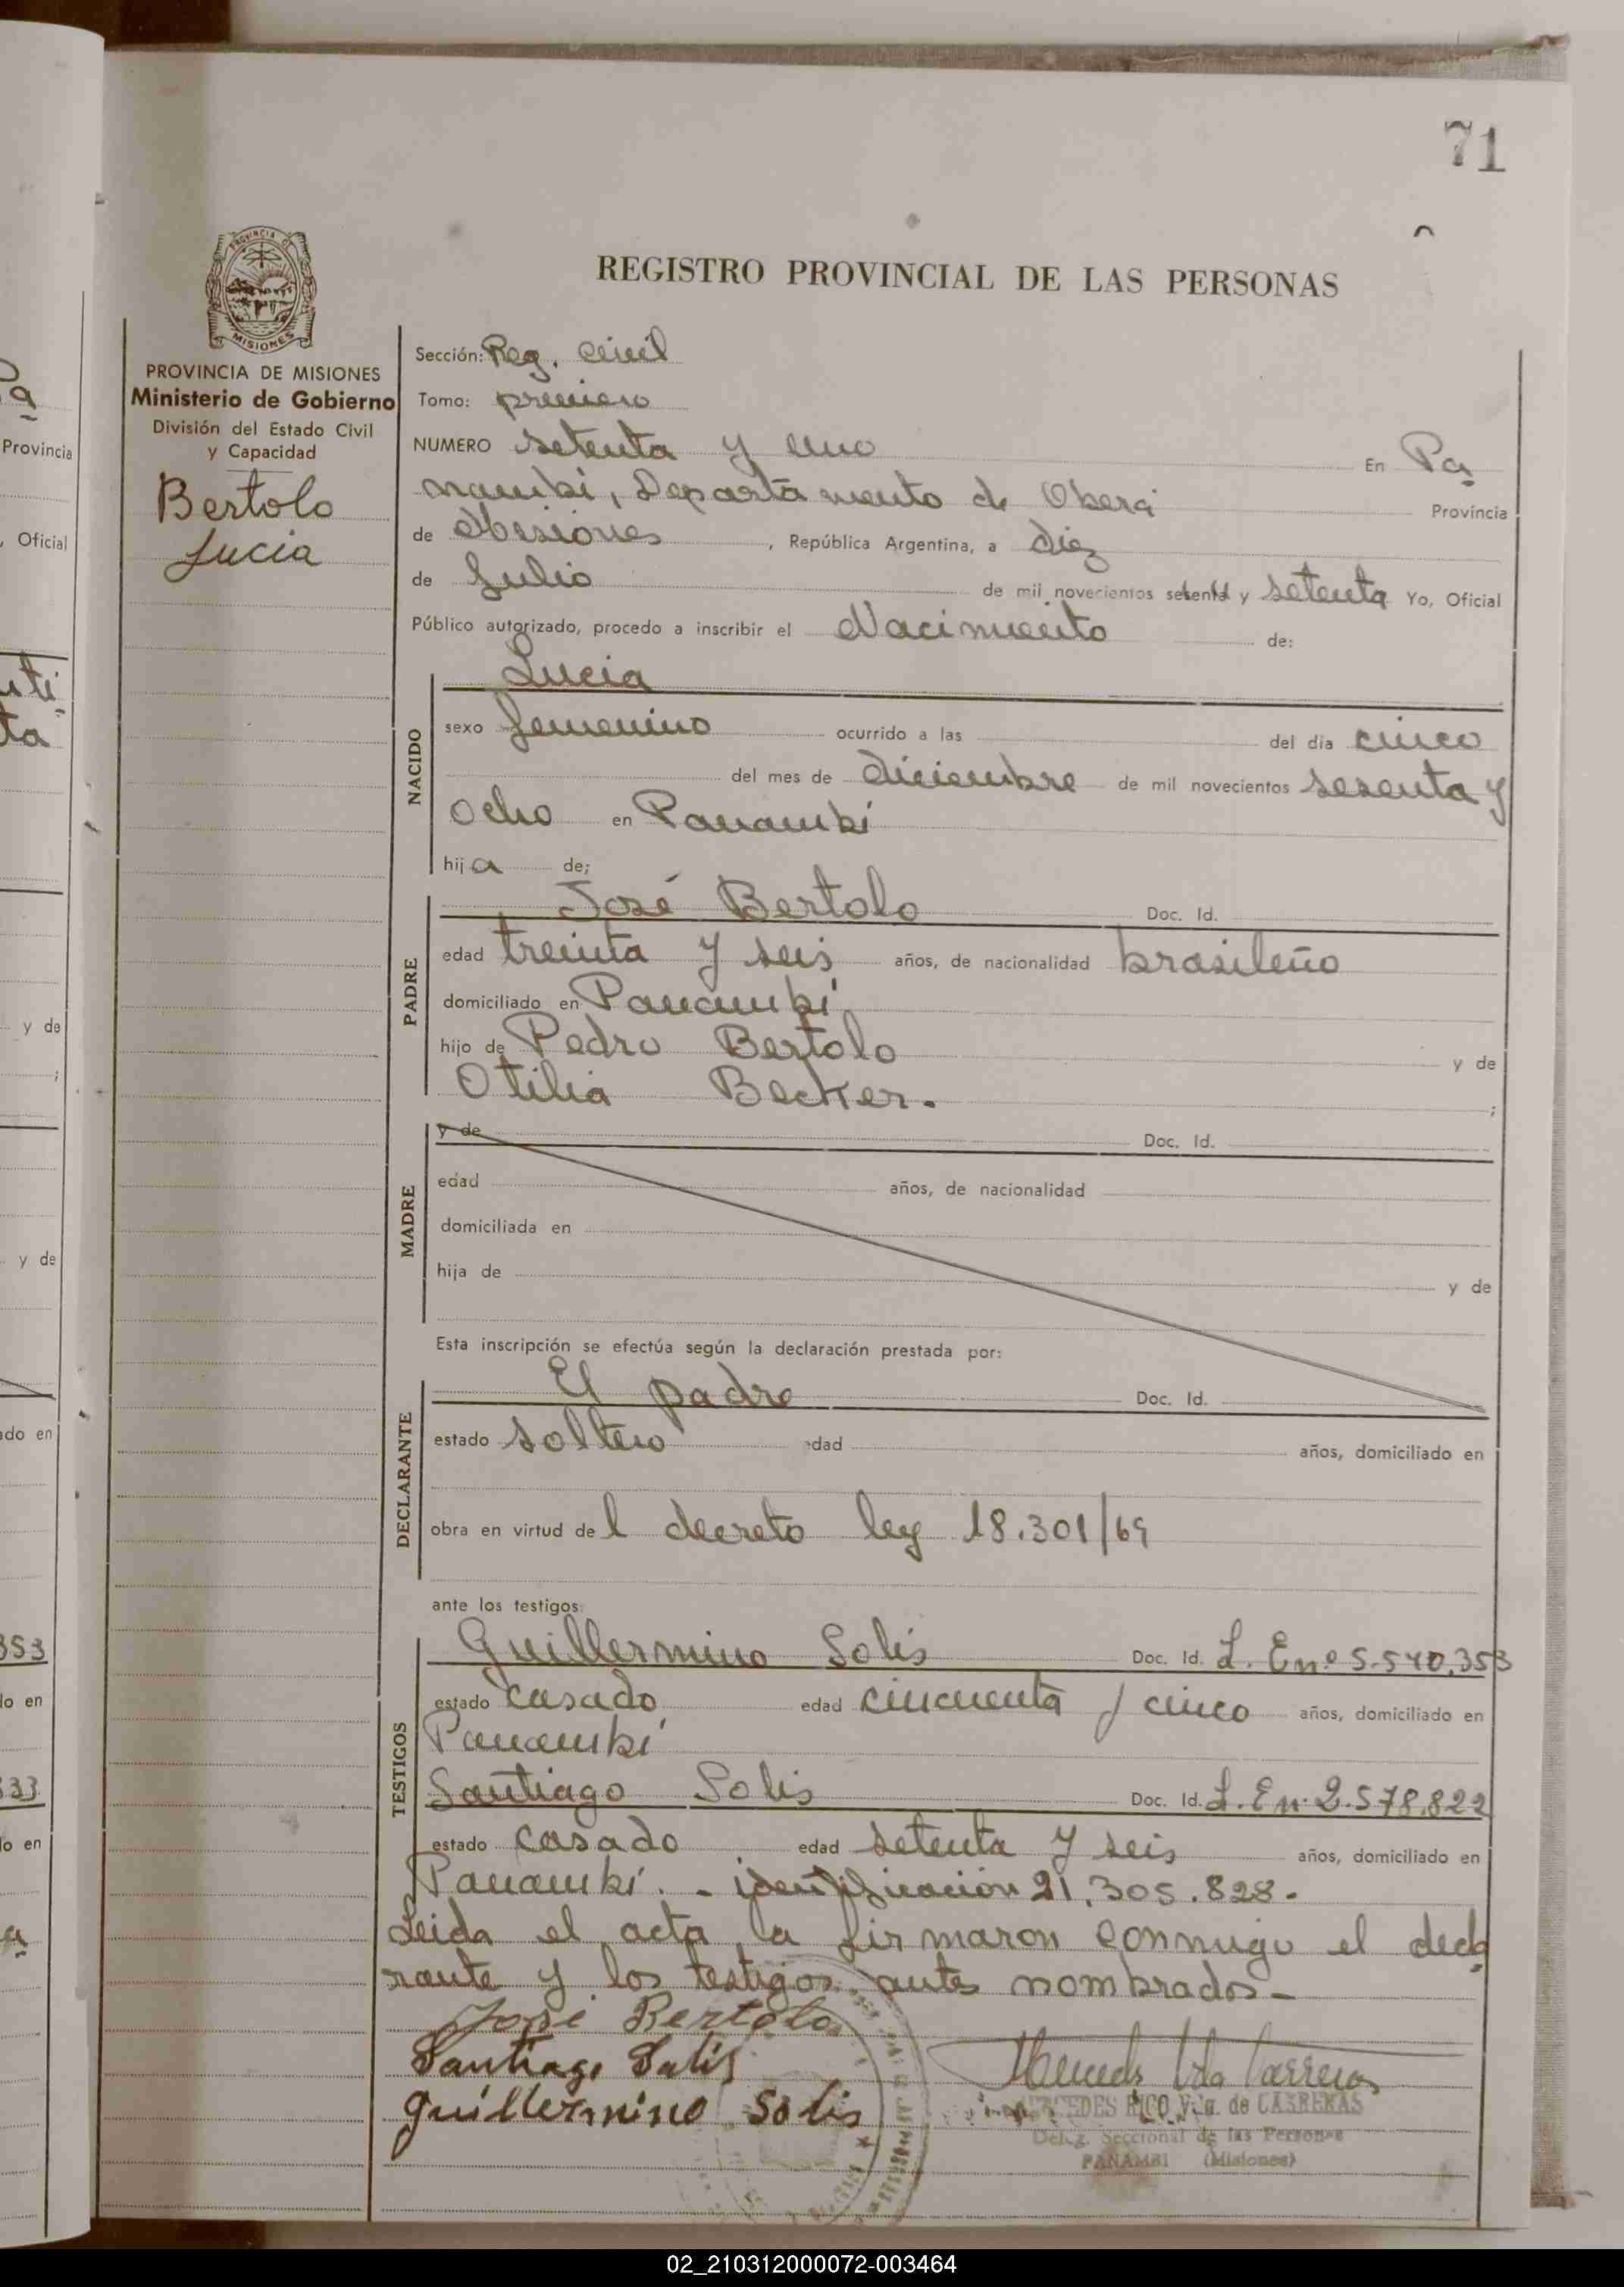 71
REGISTRO PROVINCIAL DE LAS PERSONAS
PROVINCIA DE MISIONES
PROVINCIA DE MISIONES
Ministerio de Gobierno
División del Estado Civil
y Capacidad
Bertolo
Lucia
Sección: Reg. civil
Tomo: primero
NUMERO setenta y uno En Pa
nambi, Departamento de Obera Provincia
de Misiones, República Argentina, a diez
de Julio de mil novecientos setenta y setenta Yo, Oficial
Público autorizado, procedo a inscribir el Nacimiento de:
NACIDO
Lucia
sexo femenino ocurrido a las del día cinco
del mes de diciembre de mil novecientos sesenta y
ocho en Panambí
hija de;
PADRE
José Bertolo Doc. Id.
edad treinta y seis años, de nacionalidad brasileño
domiciliado en Panambí
hijo de Pedro Bertolo y de
Otilia Becker. ;
MADRE
y de Doc. Id.
edad años, de nacionalidad
domiciliada en
hija de y de
Esta inscripción se efectúa según la declaración prestada por:
DECLARANTE
El padre Doc. Id.
estado soltero edad años, domiciliado en
obra en virtud del decreto ley 18.301/69
ante los testigos:
TESTIGOS
Guillermino Solis Doc. Id. L. E nº 5.540.353
estado casado edad cincuenta y cinco años, domiciliado en
Panambí
Santiago Solis Doc. Id. L. E n. 2.578.822
estado casado edad setenta y seis años, domiciliado en
Panambí. - identificación 21.305.828.
Leida el acta la firmaron conmigo el decla
rante y los testigos antes nombrados-
José Bertolo
Santiago Solis
Guillermino Solis
MERCEDES RICO Vda. de CARRERAS
Deleg. Seccional de las Personas
PANAMBI (Misiones)
Provincia
, Oficial
y de
;
y de
ado en
353
do en
333
do en
02_210312000072-003464